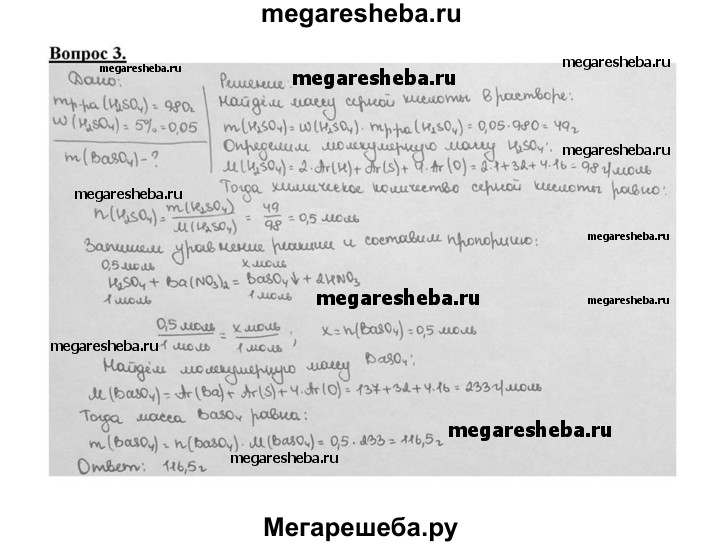 megaresheba.ru
Вопрос 3.
megaresheba.ru
megaresheba.ru
Дано:
mр-ра(H₂SO₄)=980г
w(H₂SO₄)=5%=0,05
m(BaSO₄)-?
Решение:
megaresheba.ru
Найдём массу серной кислоты в растворе:
m(H₂SO₄)=w(H₂SO₄)·mр-ра(H₂SO₄)=0,05·980=49г
Определим молекулярную массу H₂SO₄:
megaresheba.ru
M(H₂SO₄)=2·Ar(H)+Ar(S)+4·Ar(O)=2·1+32+4·16=98г/моль
Тогда химическое количество серной кислоты равно:
megaresheba.ru
n(H₂SO₄)=m(H₂SO₄)/M(H₂SO₄)=49/98=0,5 моль
Запишем уравнение реакции и составим пропорцию:
megaresheba.ru
0,5 моль x моль
H₂SO₄+Ba(NO₃)₂=BaSO₄↓+2HNO₃
1 моль 1 моль
megaresheba.ru
megaresheba.ru
0,5 моль/1 моль=x моль/1 моль; x=n(BaSO₄)=0,5 моль
megaresheba.ru
Найдём молекулярную массу BaSO₄:
M(BaSO₄)=Ar(Ba)+Ar(S)+4·Ar(O)=137+32+4·16=233г/моль
Тогда масса BaSO₄ равна:
m(BaSO₄)=n(BaSO₄)·M(BaSO₄)=0,5·233=116,5г
megaresheba.ru
Ответ: 116,5г
megaresheba.ru
Мегарешеба.ру